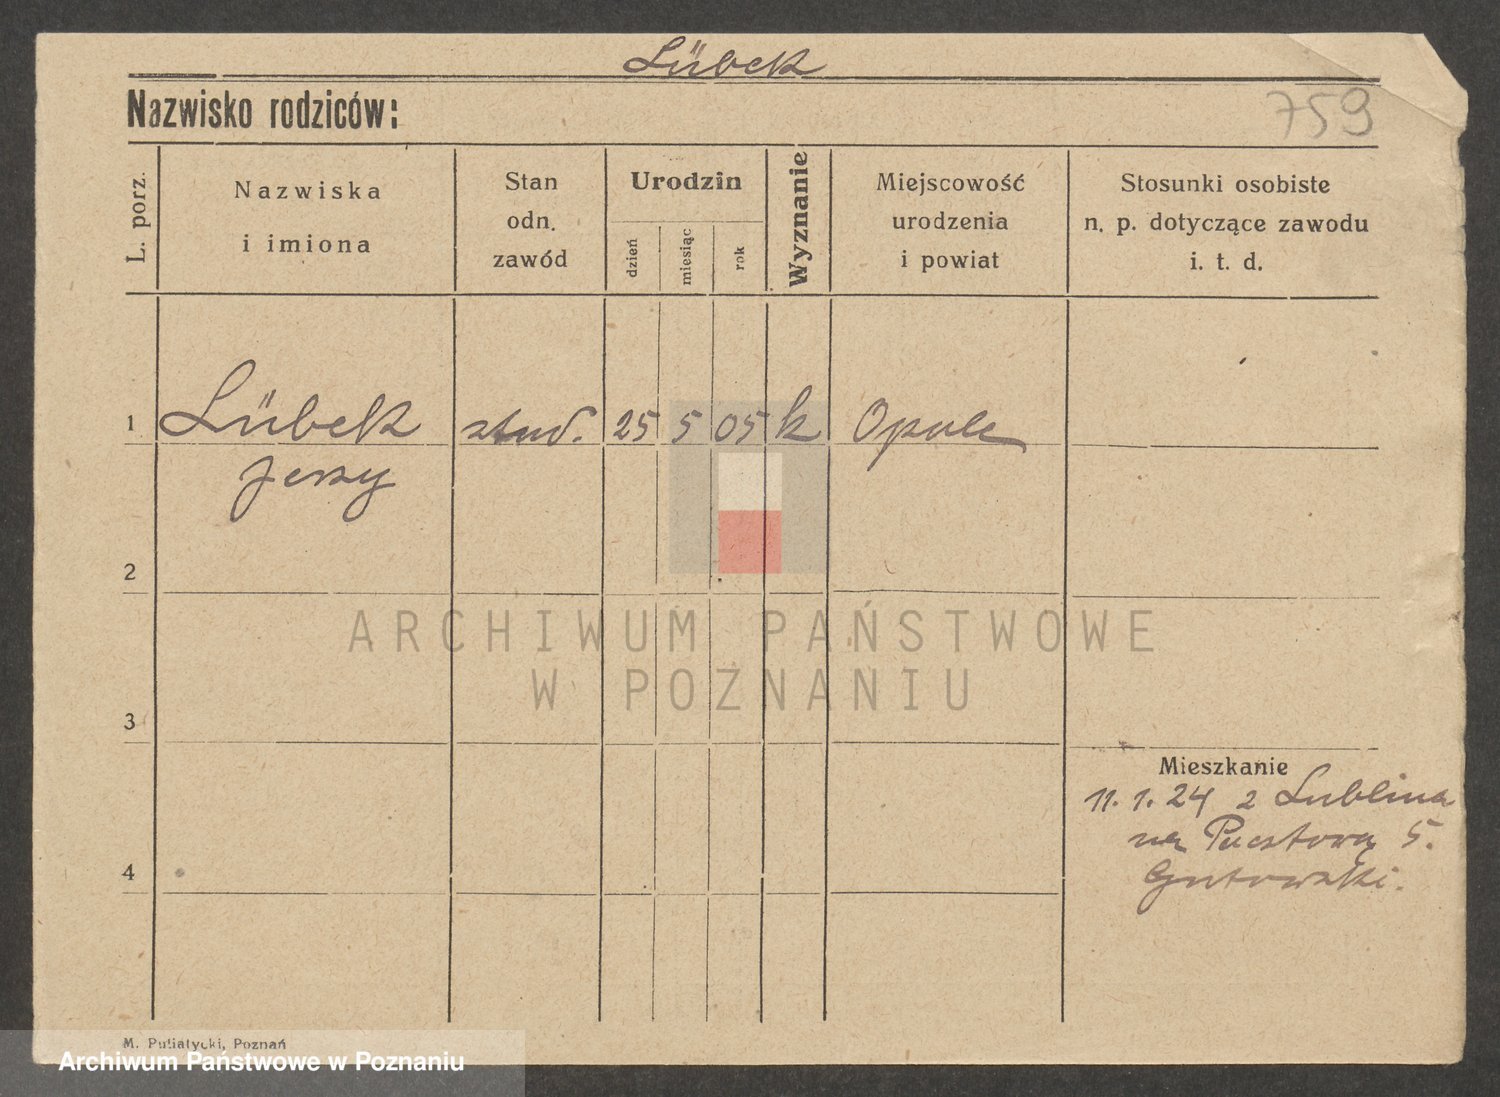 Lübek
Nazwisko rodziców:
759
L. porz.
Nazwiska
i imiona
Stan
odn.
zawód
Urodzin
dzień
miesiąc
rok
Wyznanie
Miejscowość
urodzenia
i powiat
Stosunki osobiste
n. p. dotyczące zawodu
i. t. d.
1 Lübek stud. 25 5 05 k Opole
Jerzy
2
ARCHIWUM PAŃSTWOWE
W POZNANIU
3
Mieszkanie
11. 1. 24 z Lublina
na Pocztową 5.
4
Gutowski.
M. Putiatycki, Poznań
Archiwum Państwowe w Poznaniu